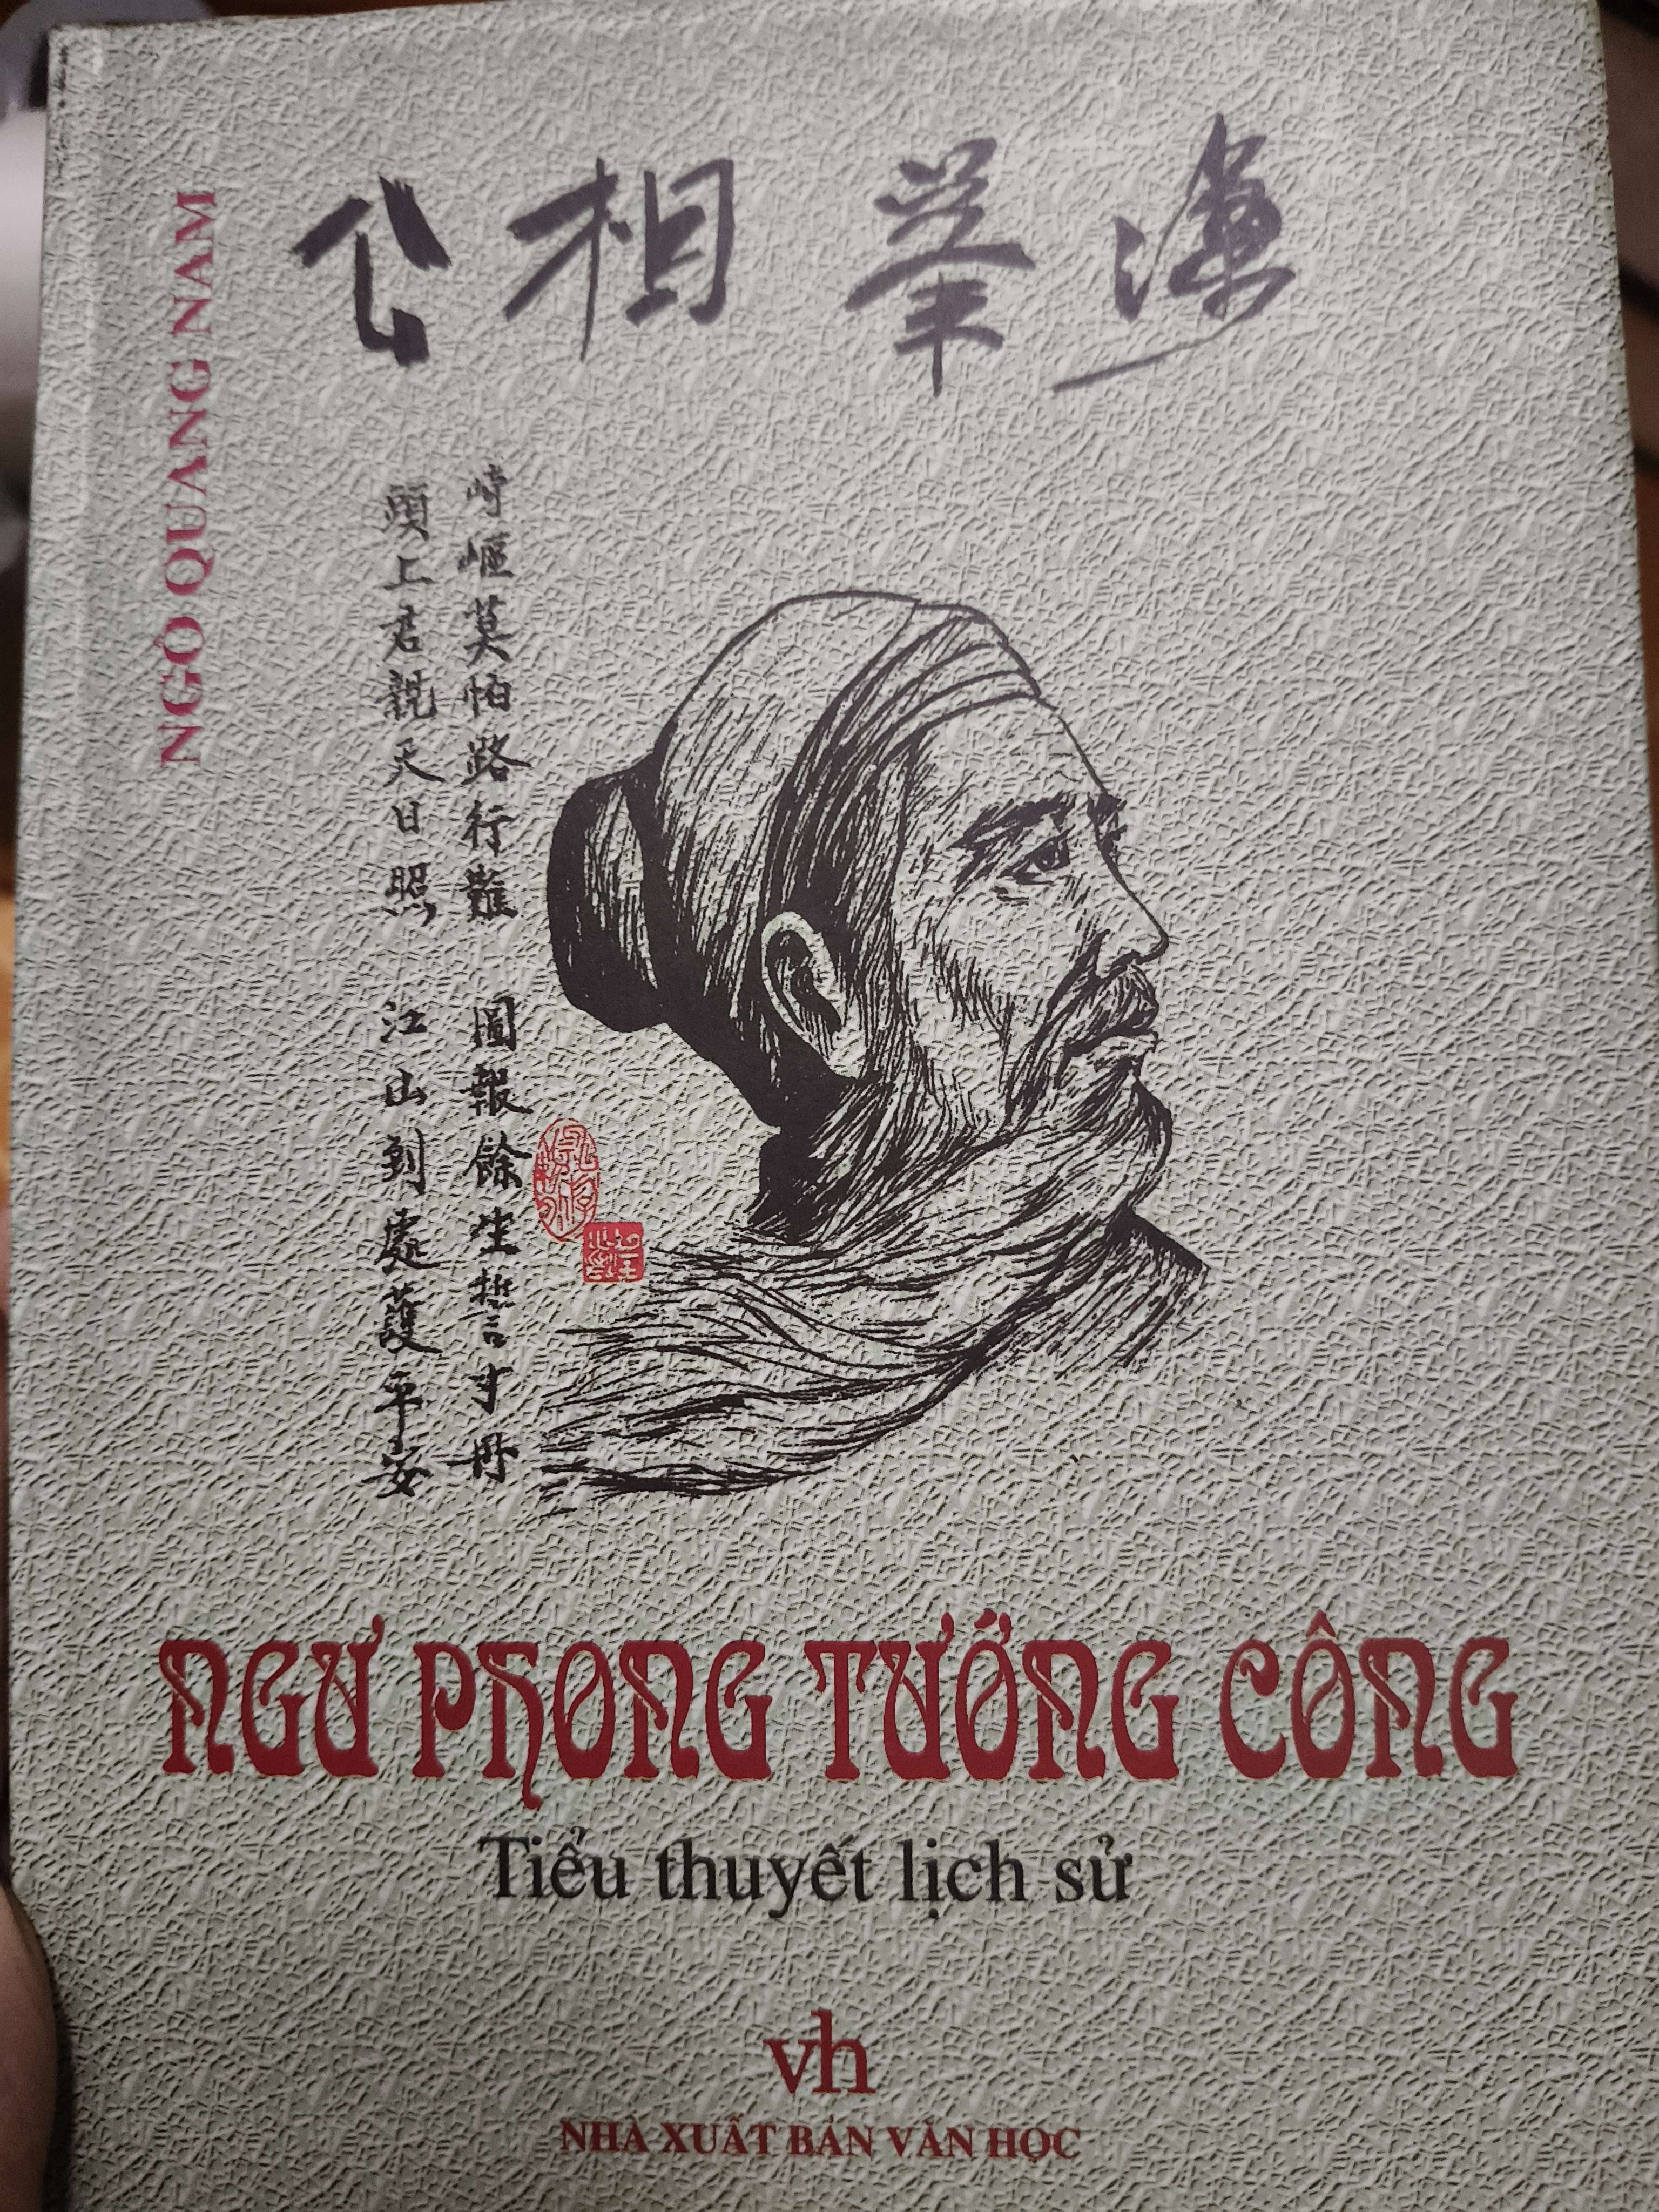 漁峯相公
NGÔ QUANG NAM
崎嶇莫怕路行難 圖報餘生誓寸丹
頭上君親天日照 江山到處護平安
NGƯ PHONG TƯỚNG CÔNG
Tiểu thuyết lịch sử
vh
NHÀ XUẤT BẢN VĂN HỌC